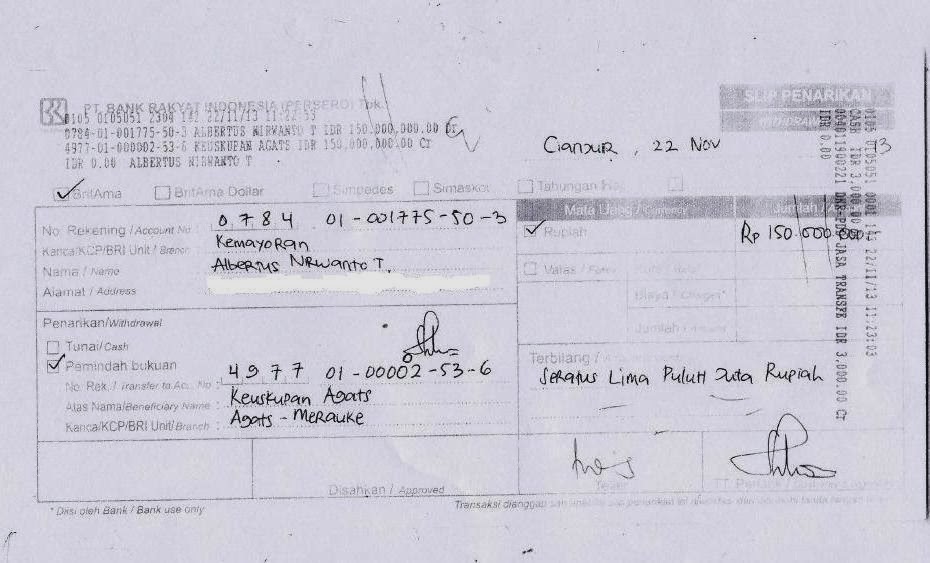 PT. BANK RAKYAT INDONESIA (PERSERO) Tbk.
SLIP PENARIKAN
0105 0105051 2304 142 22/11/13 11:22:53
0784-01-001775-50-3 ALBERTUS NIRWANTO T IDR 150,000,000.00 Dr
4977-01-000002-53-6 KEUSKUPAN AGATS IDR 150,000,000.00 Cr
IDR 0.00 ALBERTUS NIRWANTO T
Cianjur, 22 Nov 13
BritAma BritAma Dollar Simpedes Simaskot Tabungan Haji
Mata Uang / Currency Jumlah /
No. Rekening / Account No. : 0784 01-001775-50-3
Rupiah Rp 150.000.000
Kanca/KCP/BRI Unit / Branch : Kemayoran
Nama / Name Albertus Nirwanto T.
Valas /
Alamat / Address
Biaya / Charges*
Jumlah /
Penarikan/Withdrawal
Tunai/Cash
Pemindah bukuan
Terbilang /
No. Rek. / Transfer to Acc. No : 4977 01-00002-53-6
Seratus Lima Puluh Juta Rupiah
Atas Nama/Beneficiary Name : Keuskupan Agats
Kanca/KCP/BRI Unit/ Branch : Agats - Merauke
Disahkan / Approved
Teller
* Diisi oleh Bank / Bank use only
Transaksi dianggap sah apabila
0105 0105051 0001 145 22/11/13 11:23:03
CASH IDR 3,000.00
IDR 0.00
JASA TRANSFER IDR 3,000.00 Cr